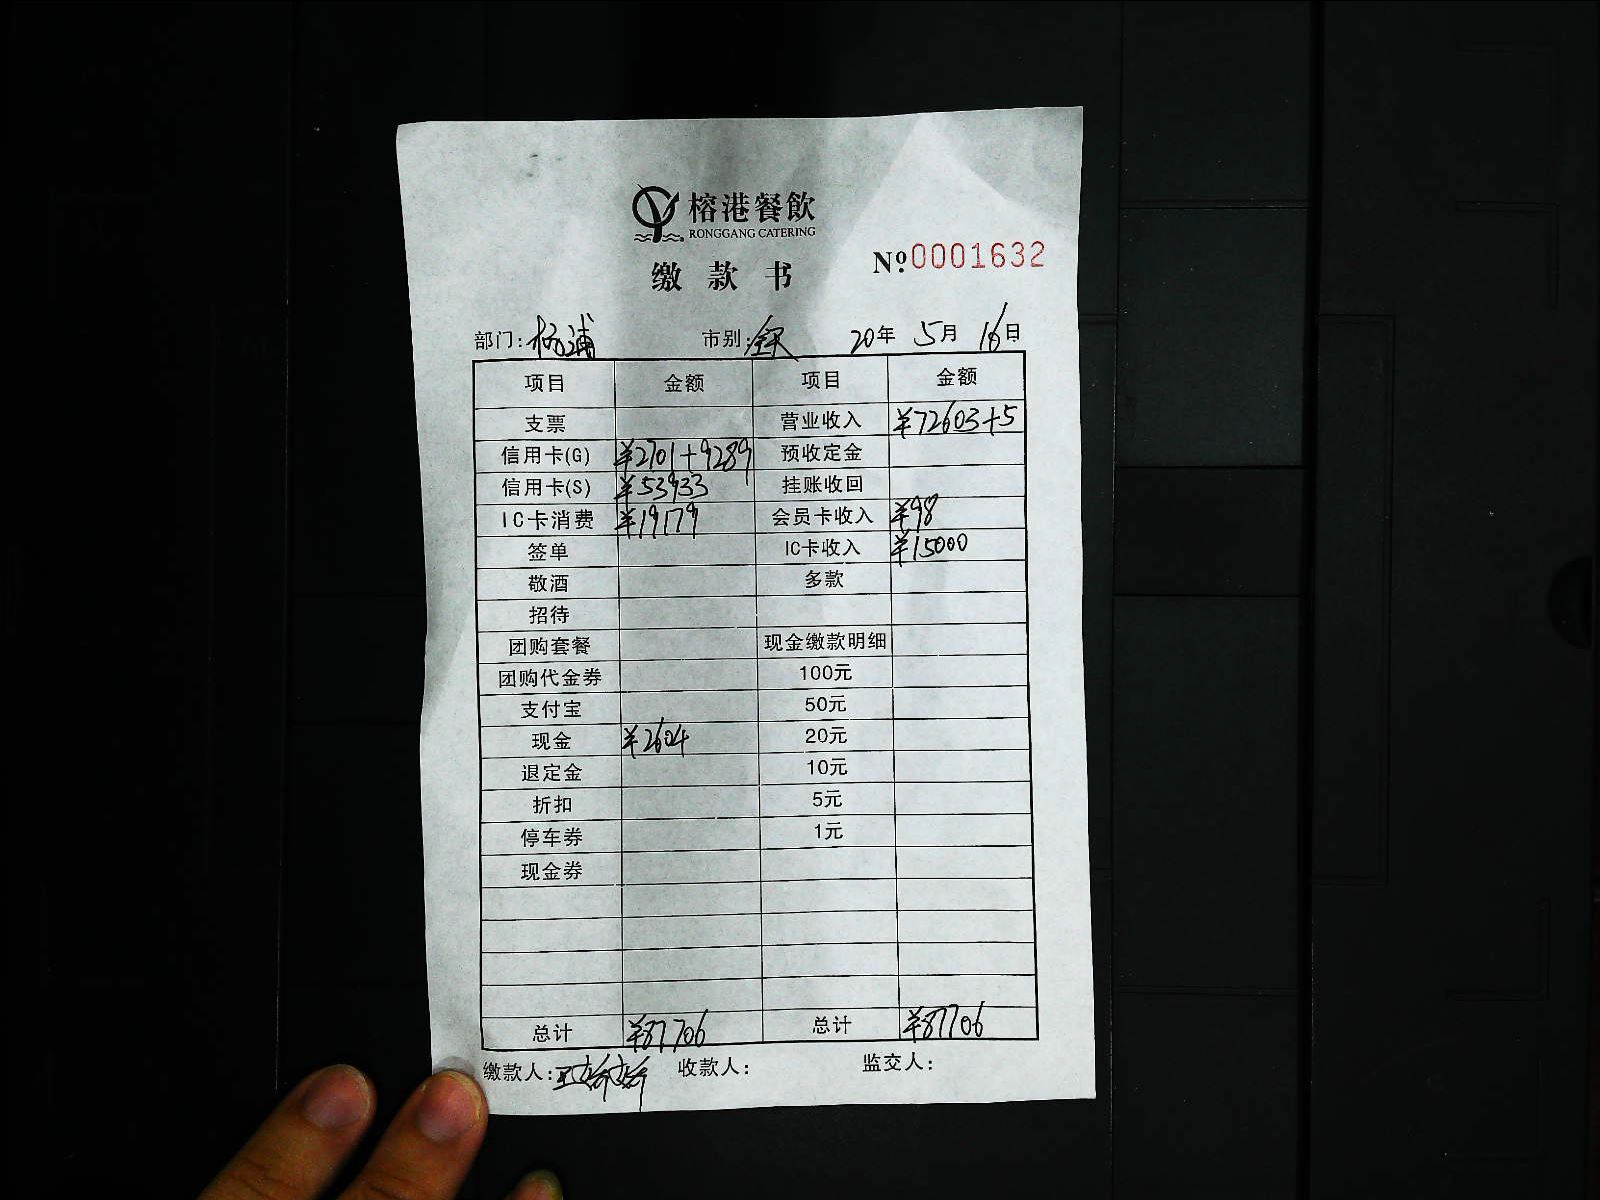 榕港餐飲
RONGGANG CATERING
缴款书
Nº0001632
部门:杨浦 市别:全天 20年 5月 16日
项目 金额 项目 金额
支票 营业收入 ¥72603+5
信用卡(G) ¥2701+9289 预收定金
信用卡(S) ¥53933 挂账收回
IC卡消费 ¥19179 会员卡收入 ¥98
签单 IC卡收入 ¥15000
敬酒 多款
招待
团购套餐 现金缴款明细
团购代金券 100元
支付宝 50元
现金 ¥2604 20元
退定金 10元
折扣 5元
停车券 1元
现金券
总计 ¥87706 总计 ¥87706
缴款人:王娇娇 收款人: 监交人: